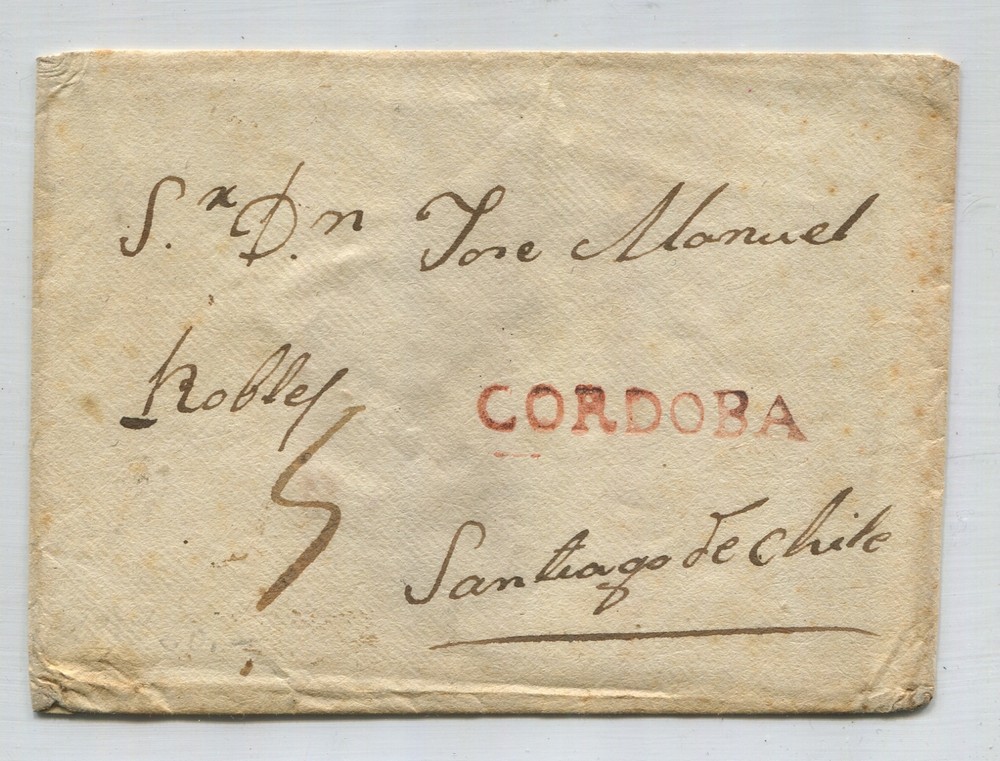 S.r D.n Jose Manuel
Robles
CORDOBA
5
Santiago de Chile